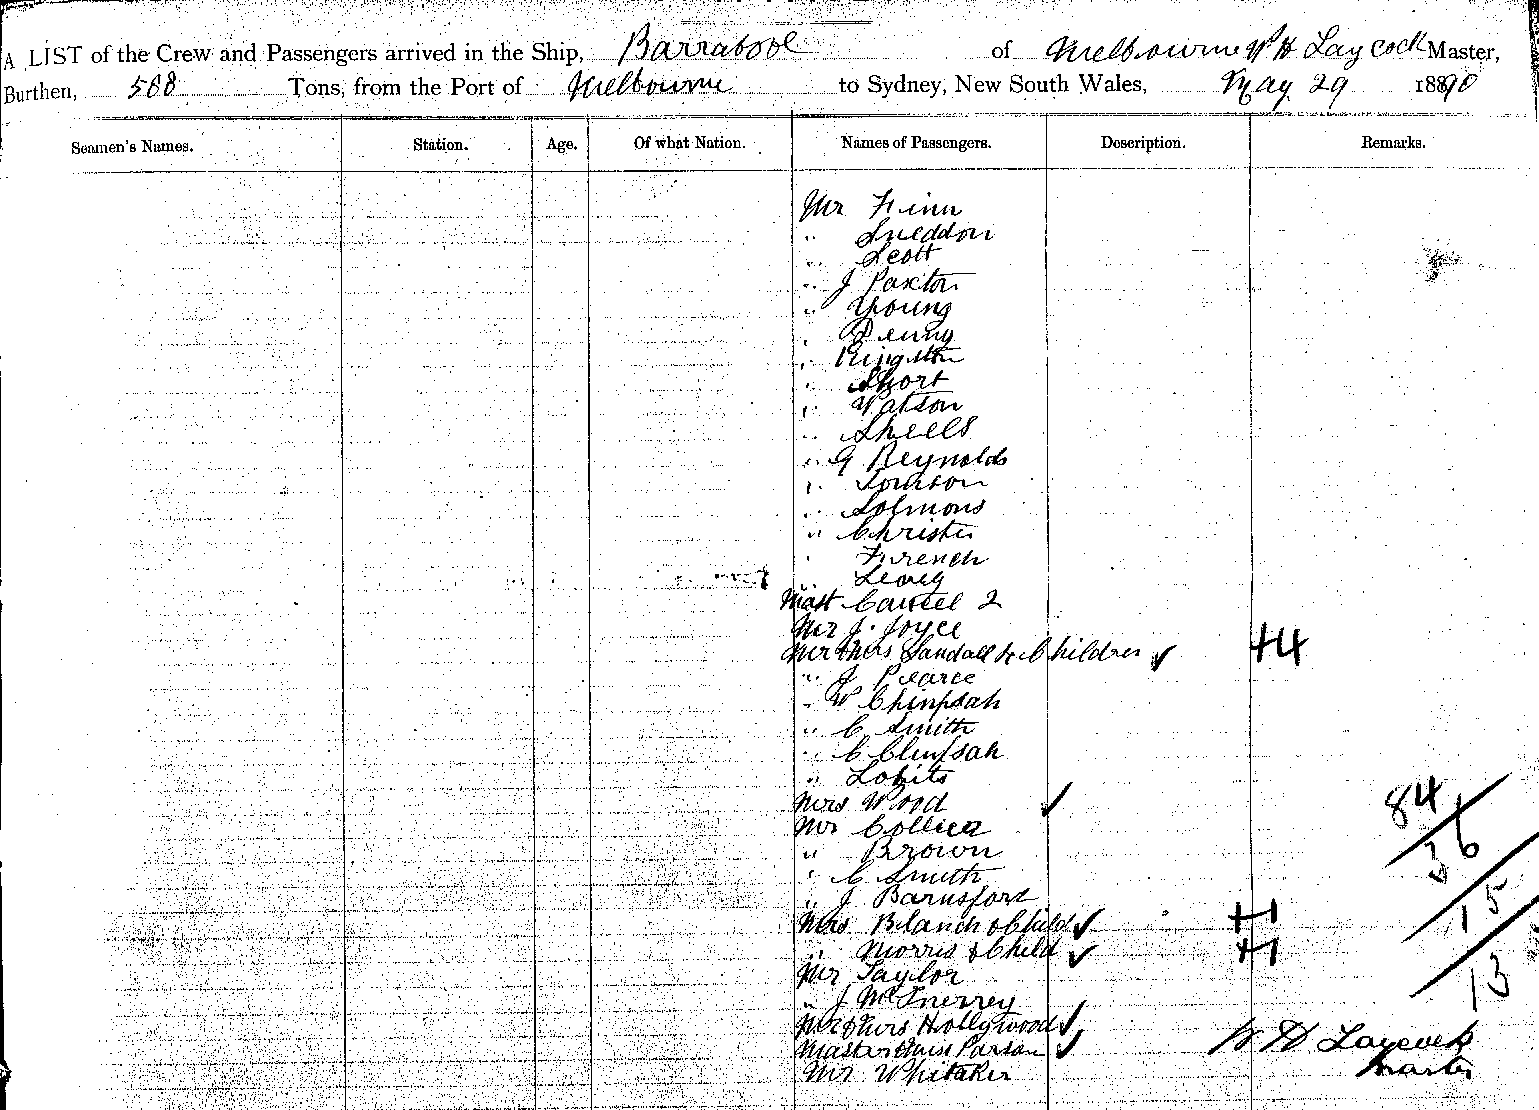 A LIST of the Crew and Passengers arrived in the Ship, Barrabool of Melbourne W H Laycock Master,
Burthen, 588 Tons, from the Port of Melbourne to Sydney, New South Wales, May 29 1890
Seamen's Names. Station. Age. Of what Nation. Names of Passengers. Description. Remarks.
Mr Finn
" Sneddon
" Scott
" J Paxton
" Young
" Denny
" Kingston
" Short
" Watson
" Sheels
" G Reynolds
"
" Solmons
" Christie
" French
" Levey
Mast 2
Mr J. Joyce
Mr & Mrs Sandall & 4 Children ✓ +4
" J Pearce
" W
" C Smith
" C
"
Mrs Wood ✓
Mr 84
" Brown 36
" C Smith
" J Barnsford
Mrs Blanch & Child ✓ +1 15
" Morris & Child ✓ +1
Mr Taylor 13
" J McInerney
Mr & Mrs Hollywood ✓ W H Laycock
Master & Miss Parson ✓ Master
Mr Whitaker